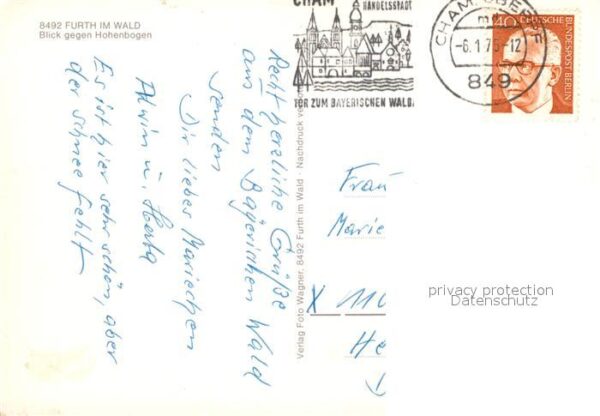 8492 FURTH IM WALD
Blick gegen Hohenbogen
Recht herzliche Grüße
aus dem Bayerischen Wald
senden
Dir liebes Mariechen
Alwin u. Herta
Es ist hier sehr schön, aber
der Schnee fehlt
Verlag Foto Wagner, 8492 Furth im Wald · Nachdruck
CHAM
HANDELSSTADT
TOR ZUM BAYERISCHEN WALD
CHAM, OBERPF
-6.1.76-12
849
40
DEUTSCHE
BUNDESPOST BERLIN
Frau
Marie
X 110
He
privacy protection
Datenschutz